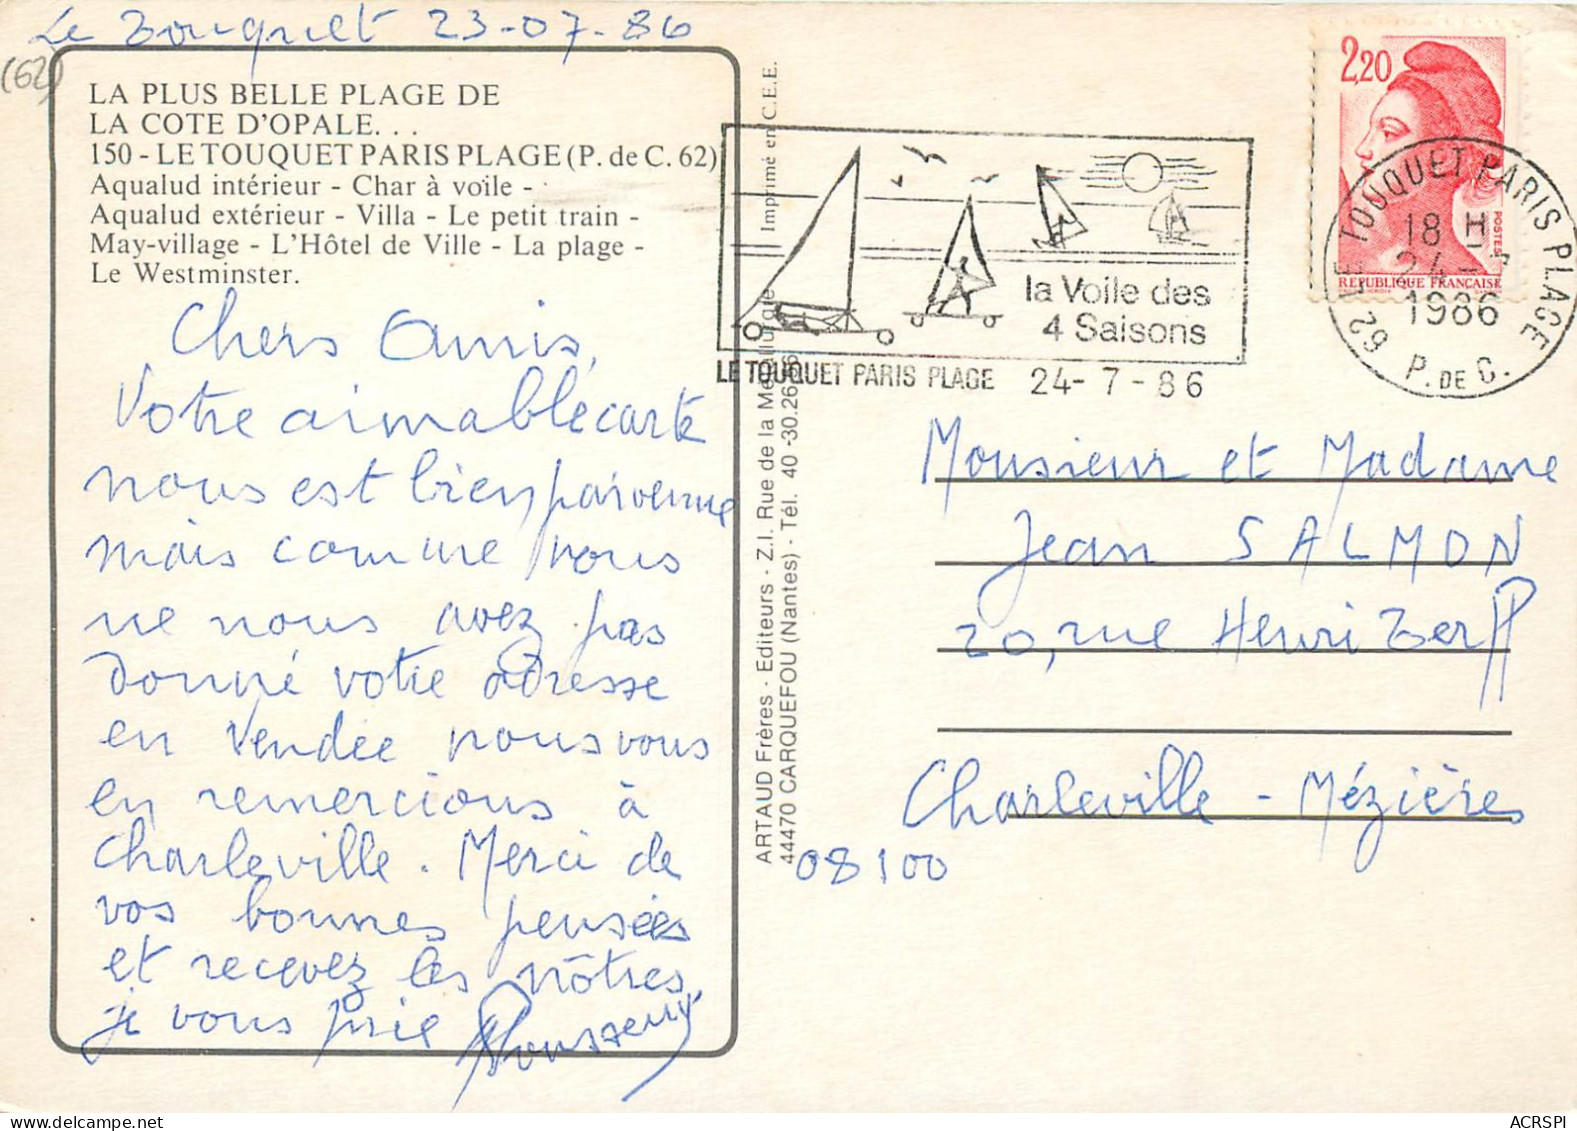 Le Touquet 23-07-86
(62)
LA PLUS BELLE PLAGE DE
LA COTE D'OPALE. . .
150 - LE TOUQUET PARIS PLAGE (P. de C. 62)
Aqualud intérieur - Char à voile -
Aqualud extérieur - Villa - Le petit train -
May-village - L'Hôtel de Ville - La plage -
Le Westminster.
Chers Amis,
Votre aimable carte
nous est bien parvenue
mais comme vous
ne nous avez pas
donné votre adresse
en Vendée nous vous
en remercions à
Charleville. Merci de
vos bonnes pensées
et recevez les nôtres
je vous prie
ARTAUD Frères - Editeurs - Z.I. Rue de la Métallurgie
44470 CARQUEFOU (Nantes) - Tél. 40-30.26
Imprimé en C.E.E.
la Voile des
4 Saisons
LE TOUQUET PARIS PLAGE 24-7-86
2,20
POSTES
REPUBLIQUE FRANÇAISE
62 LE TOUQUET PARIS PLAGE
18 H
24-7
1986
P. DE C.
Monsieur et Madame
Jean SALMON
20, rue Henri
Charleville - Mézières
08100
ACRSPI